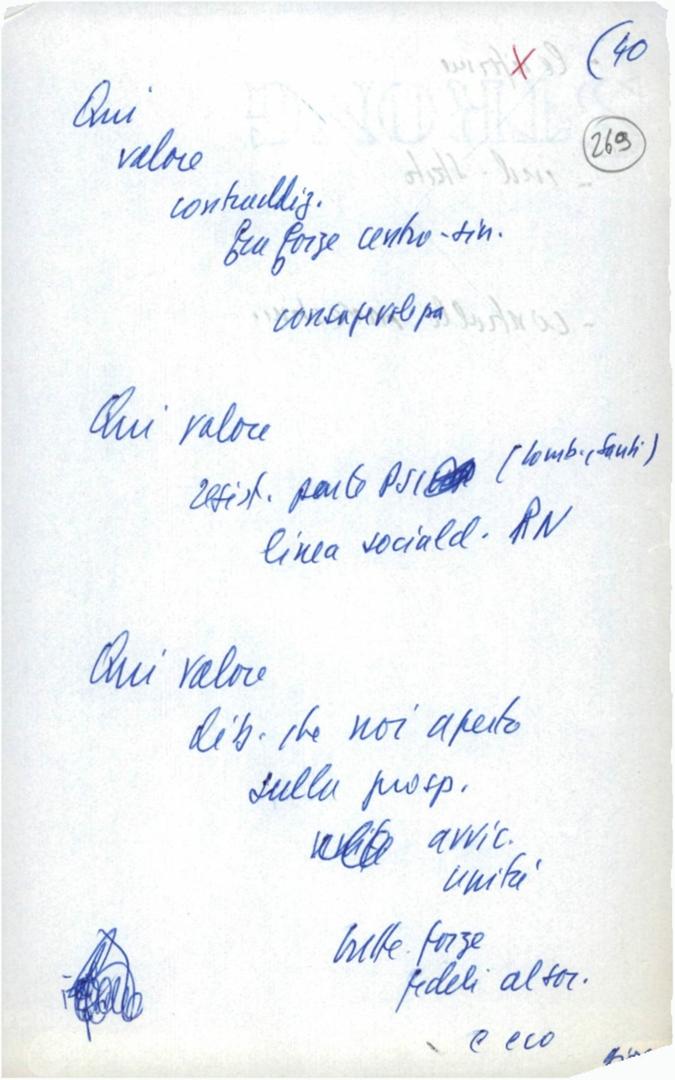 (40
269
Qui
valore
contraddiz.
fra forze centro-sin.
consapevolezza
Qui valore
resist. parte PSI (Lomb., Santi)
linea sociald. PN
Qui valore
dib. che noi aperto
sulla prosp.
avvic.
unità
tutte forze
fedeli al soc.
e ecc